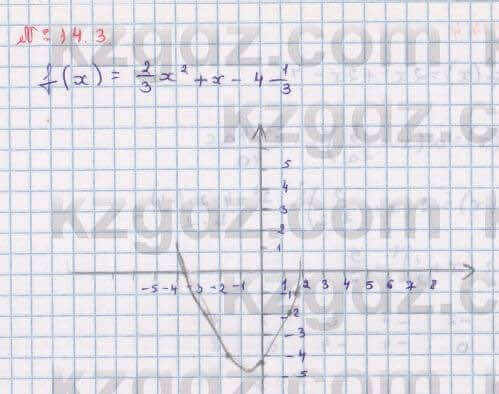 № 14.3.
f(x) = 2/3 x² + x - 4 1/3
5
4
3
2
1
-5 -4 -3 -2 -1 1 2 3 4 5 6 7 8
-1
-2
-3
-4
-5
kzgdz.com
kzgdz.com
kzgdz.com
kzgdz.com